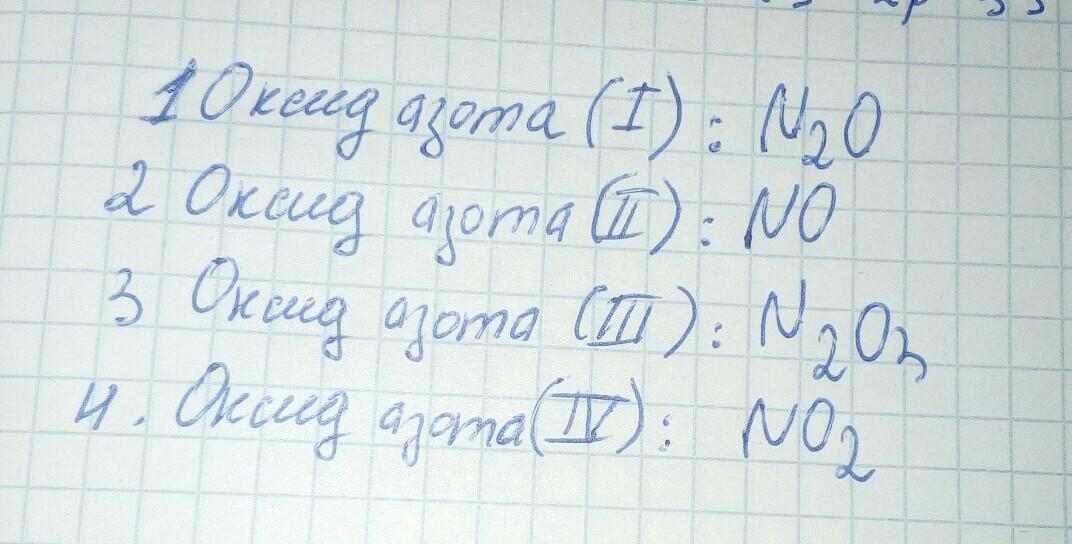 1 Оксид азота (I) : N₂O
2 Оксид азота (II) : NO
3 Оксид азота (III) : N₂O₃
4. Оксид азота (IV) : NO₂